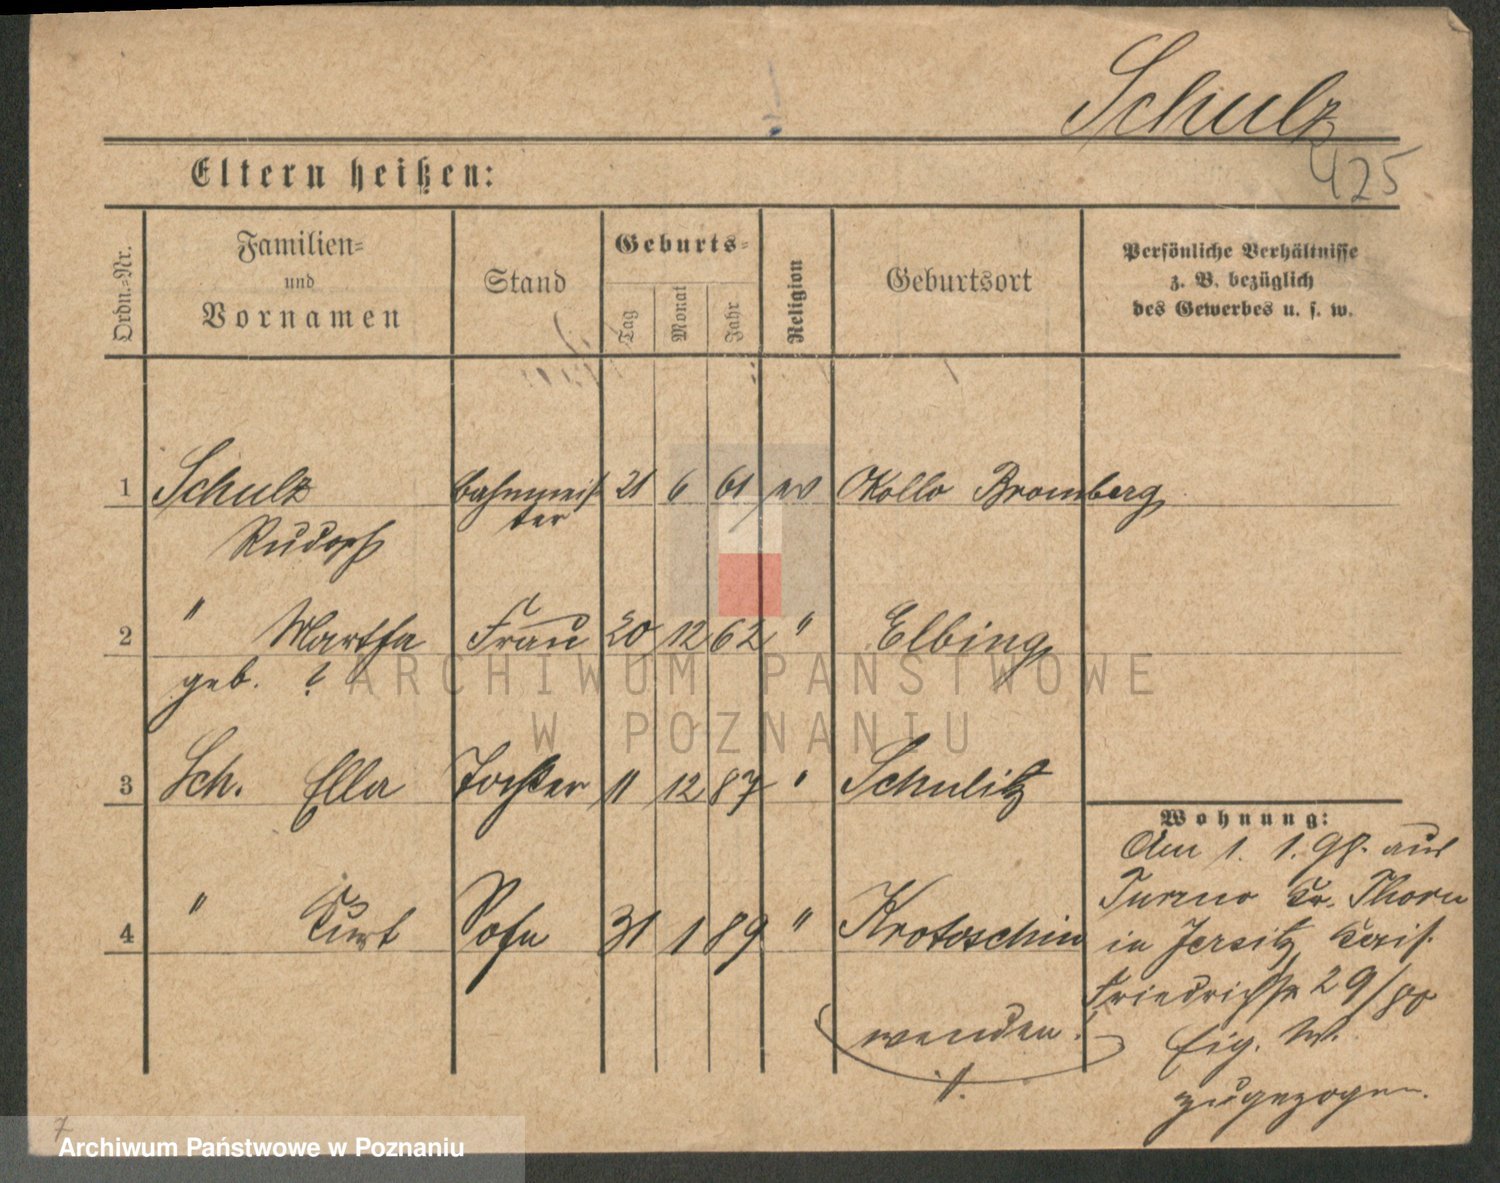 Schulz
425
Eltern heißen:
Ordn.-Nr.
Familien-
und
Vornamen
Stand
Geburts-
Tag
Monat
Jahr
Religion
Geburtsort
Persönliche Verhältnisse
z. B. bezüglich
des Gewerbes u. s. w.
1 Schulz Bahnmeis 21 6 61 ev Okollo Bromberg
ter
Rudolf
2 " Martha Frau 20 12 62 " Elbing
geb. ?
3 Sch. Ella Tochter 11 12 87 " Schulitz
4 " Kurt Sohn 31 1 89 " Krotoschin
wenden!
Wohnung:
Am 1. 1. 98. aus
Turzno Kr. Thorn
in Jersitz Kais.
Friedrichstr 29/80
Eig. W.
zugezogen.
7
ARCHIWUM PAŃSTWOWE
W POZNANIU
Archiwum Państwowe w Poznaniu